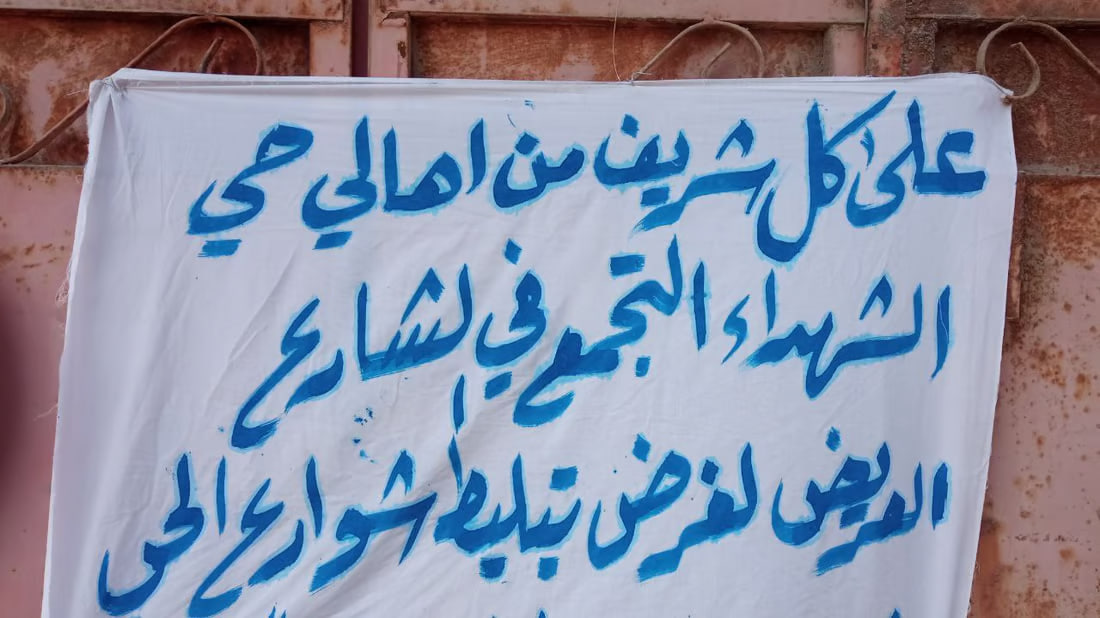 على كل شريف من اهالي حي
الشهداء التجمع في لشارع
العريض لغرض تبليط شوارع الحي